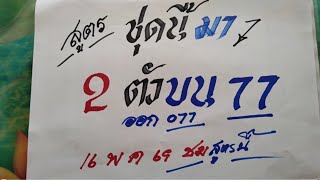 สูตร ชุดนี้ มา
2 ตัวบน 77
ออก 077
16 พ ค 69 ชมสูตรนี้